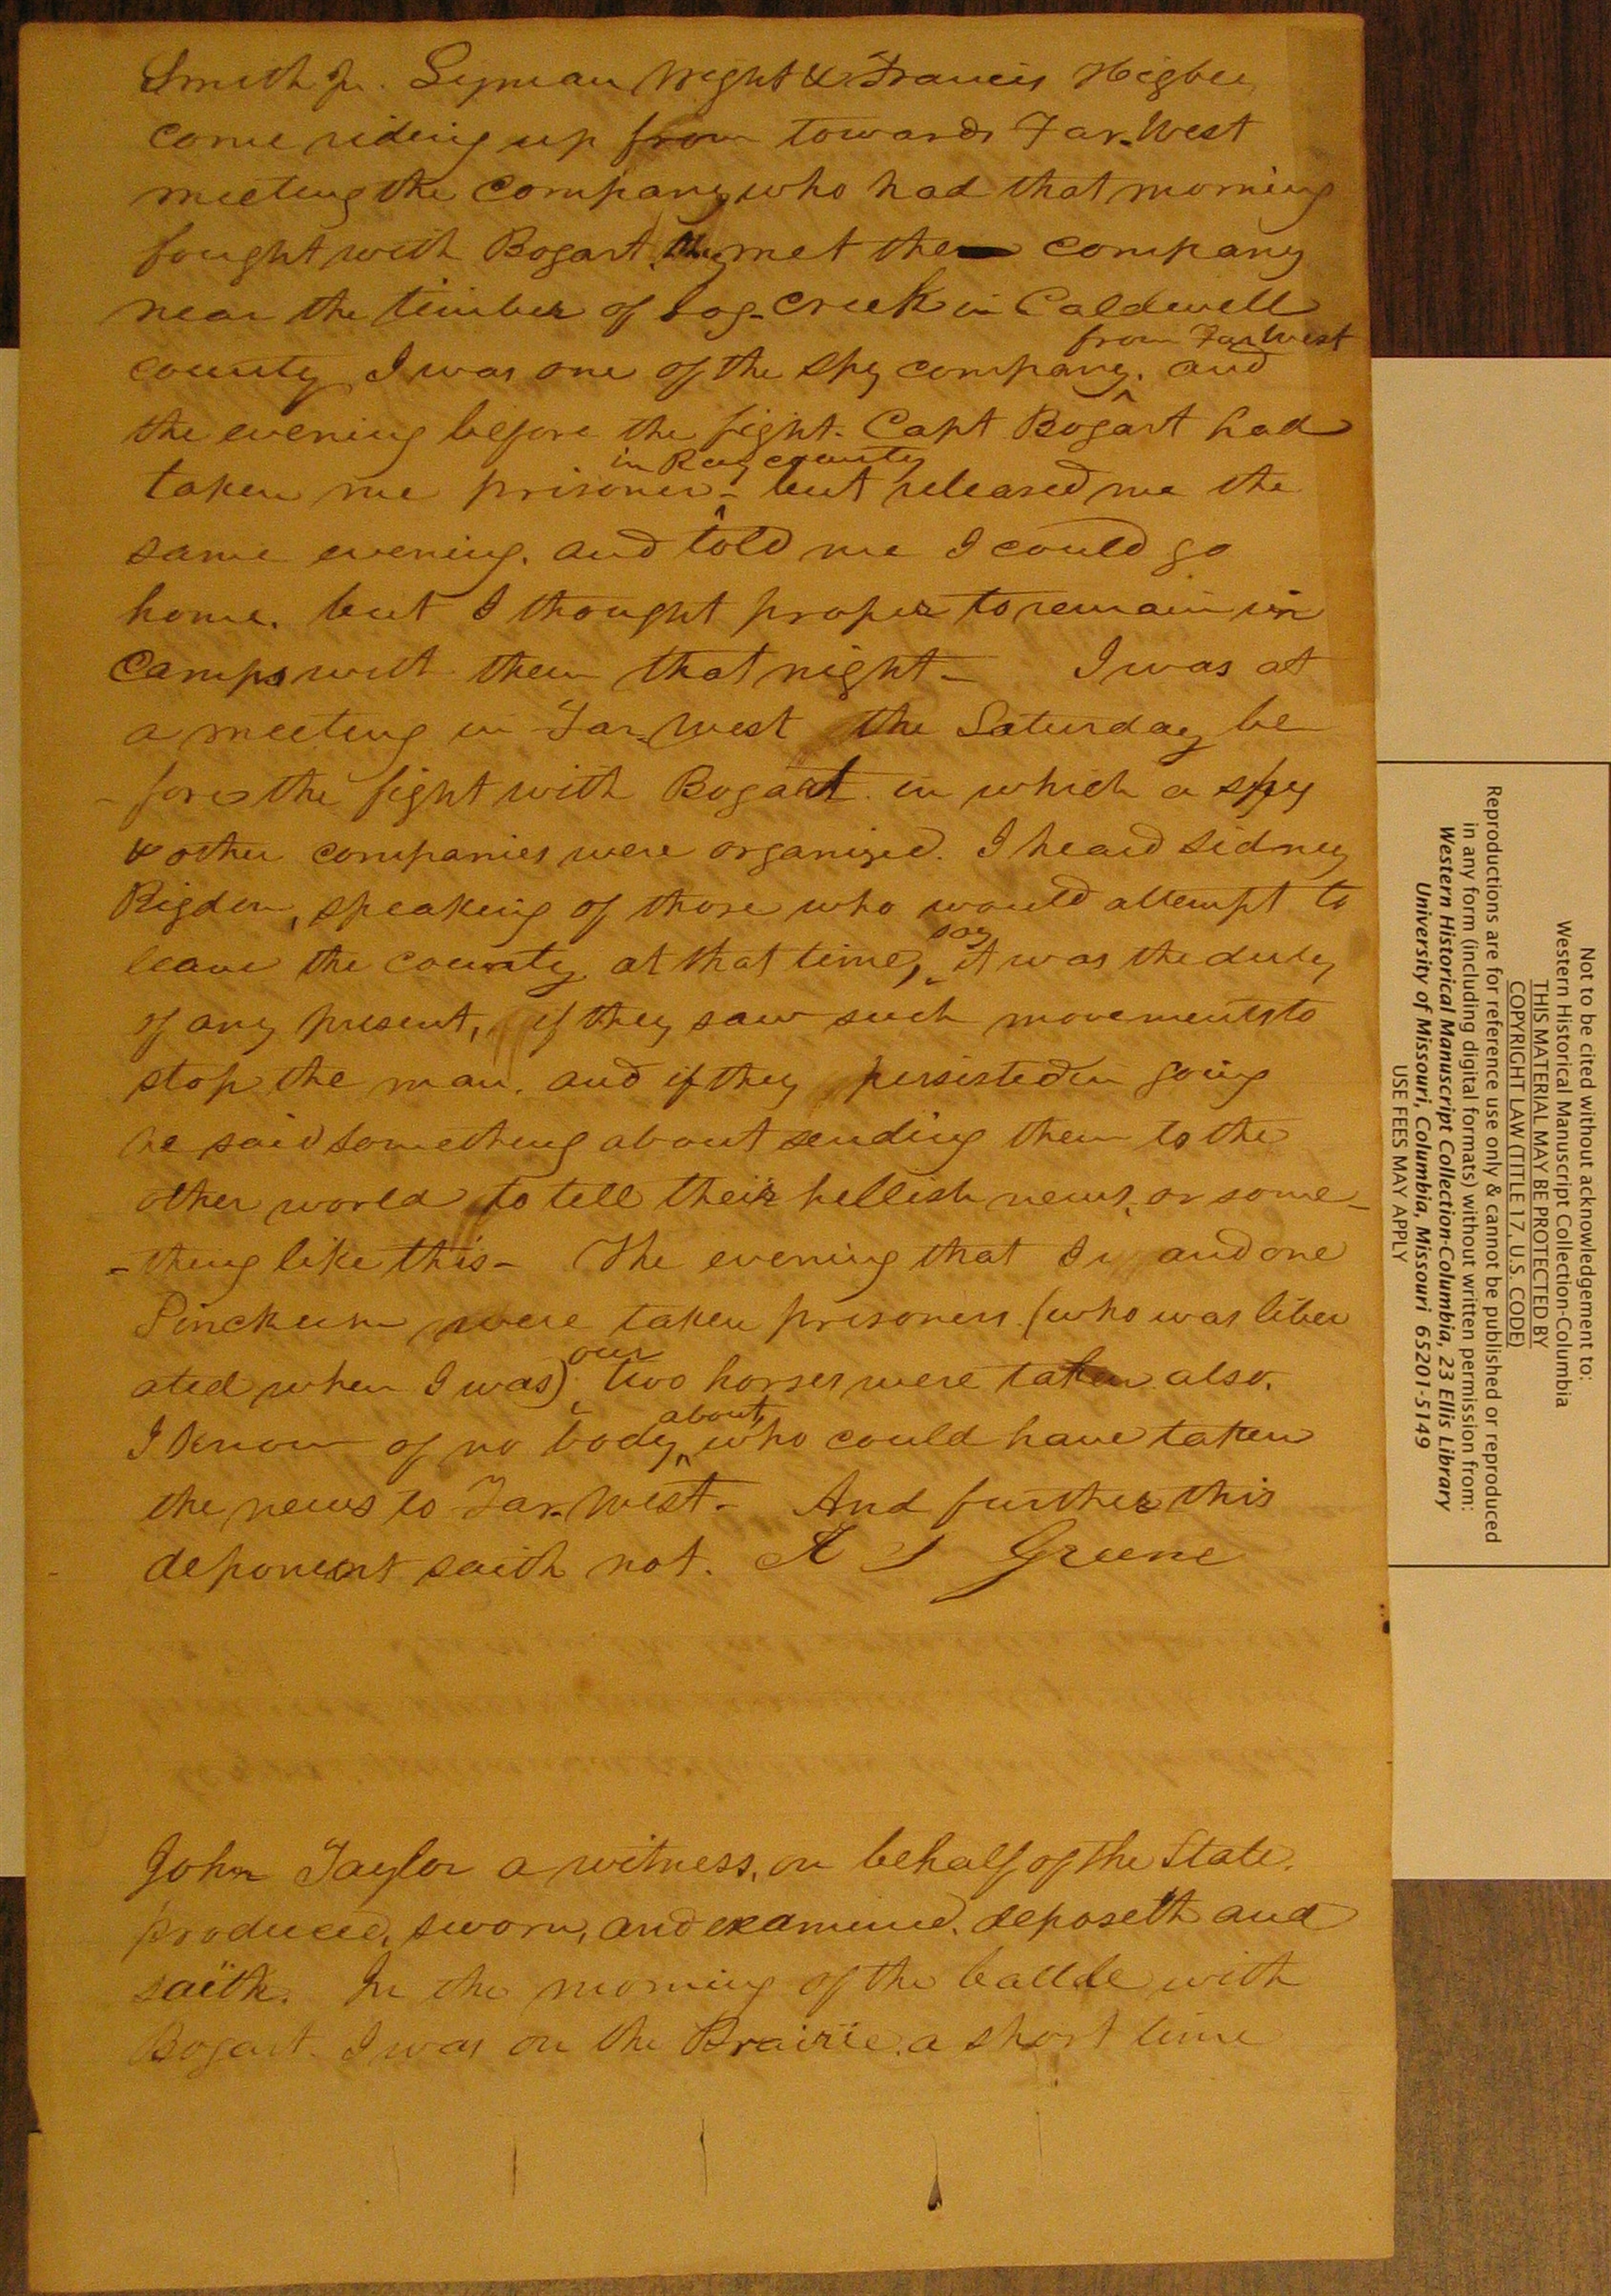 Smith Jr. Lyman Wight & Francis Higbee
come riding up from towards Far-West
meeting the company who had that morning
fought with Bogart. they met the company
near the timber of Log-Creek in Caldwell
from Far West
county I was one of the spy company. and
the evening before the fight. Capt Bogart had
in Ray county
taken me prisoner - but released me the
same evening. and told me I could go
home. but I thought proper to remain in
camps with them that night - I was at
a meeting in Far-West the Saturday be
-fore the fight with Bogart in which a spy
& other companies were organized. I heard Sidney
Rigdon, speaking of those who would attempt to
say
leave the county at that time, it was the duty
of any present, if they saw such movements to
stop the man. and if they persisted in going
he said something about sending them to the
other world to tell their hellish news, or some-
-thing like this - The evening that I and one
Pinckum were taken prisoners (who was liber
our
ated when I was) two horses were taken also.
about,
I know of no body who could have taken
the news to Far-West - And further this
deponent saith not. A J Greene
John Taylor a witness, on behalf of the State.
produced, sworn, and examined. deposeth and
saith. In the morning of the battle with
Bogart. I was on the Prairie. a short time
Not to be cited without acknowledgement to:
Western Historical Manuscript Collection-Columbia
THIS MATERIAL MAY BE PROTECTED BY
COPYRIGHT LAW (TITLE 17, U.S. CODE)
Reproductions are for reference use only & cannot be published or reproduced
in any form (including digital formats) without written permission from:
Western Historical Manuscript Collection-Columbia, 23 Ellis Library
University of Missouri, Columbia, Missouri 65201-5149
USE FEES MAY APPLY